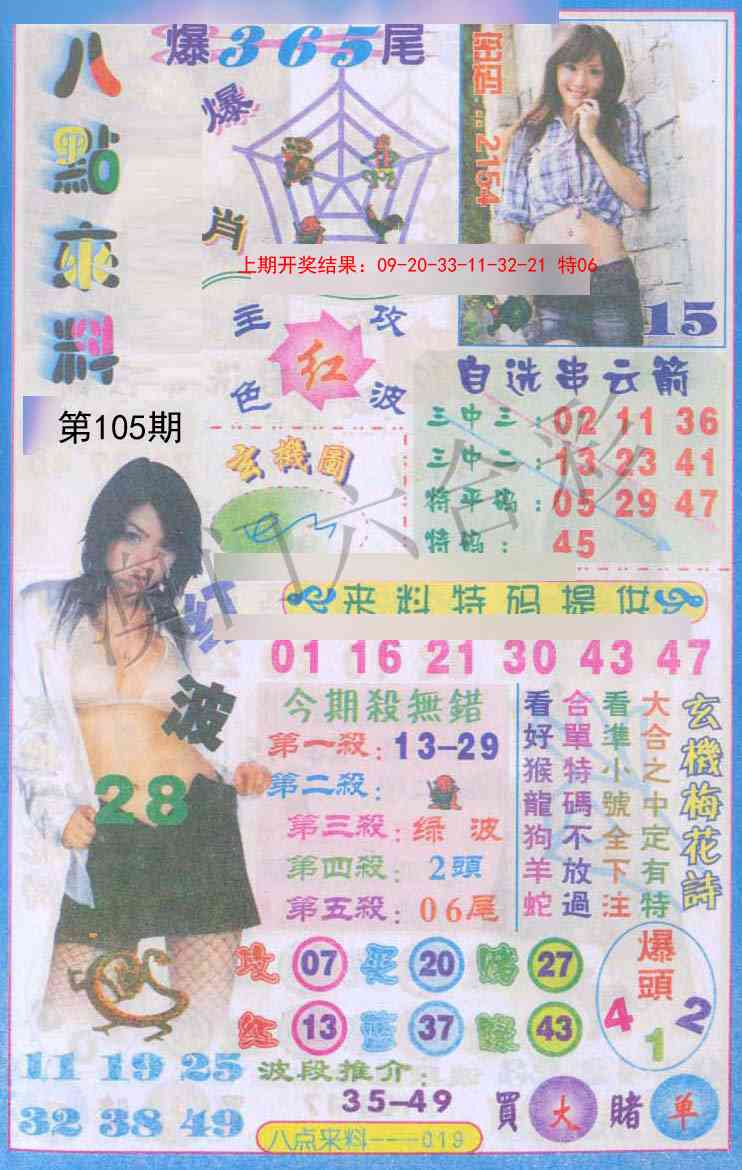 爆365尾
八點來料
爆肖
密码 2154
15
上期开奖结果：09-20-33-11-32-21 特06
主攻
红
色波
第105期
自选串云箭
三中三：02 11 36
三中二：13 23 41
特平码：05 29 47
特码：45
玄機圖
六合彩
来料特码提供
01 16 21 30 43 47
红波
28
今期殺無錯
第一殺：13-29
第二殺：
第三殺：绿波
第四殺：2頭
第五殺：06尾
玄機梅花詩
大合之中定有特
看準小號全下注
合單特碼不放過
看好猴龍狗羊蛇
攻 07 买 20 赌 27
红 13 蓝 37 綠 43
爆頭
4 1 2
11 19 25
32 38 49
波段推介：
35-49
買大賭单
八点来料----019